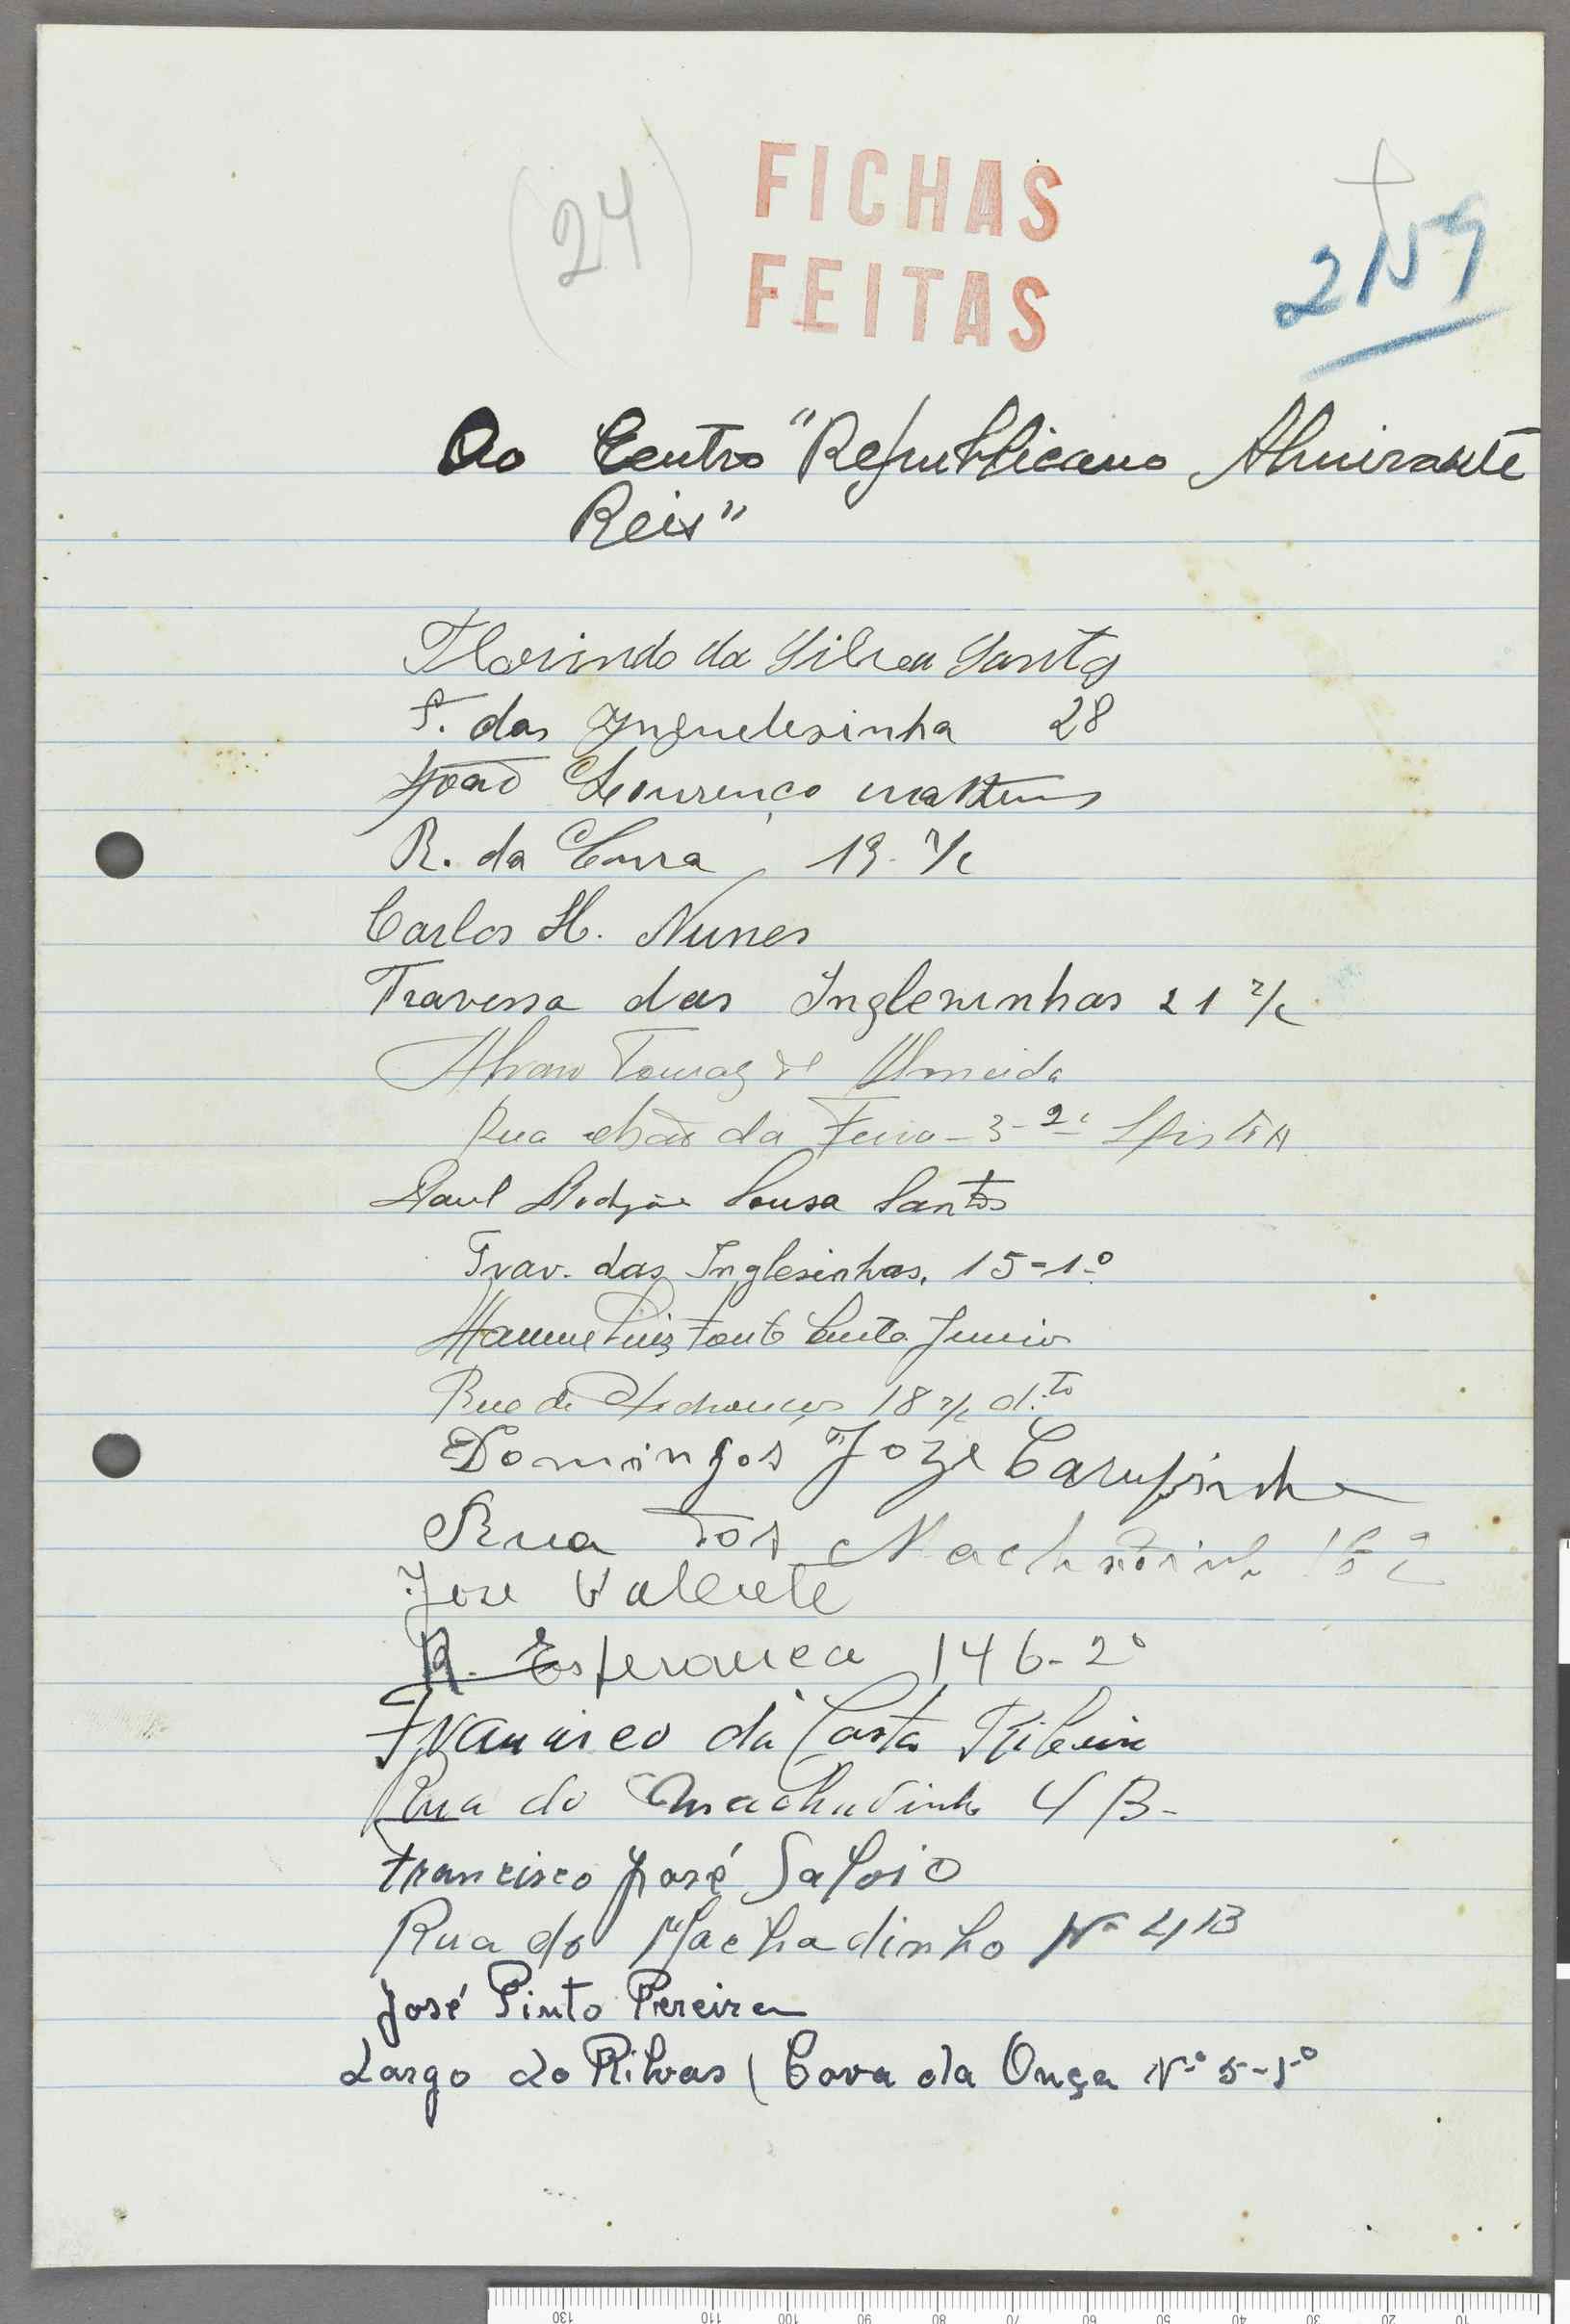 (24)
FICHAS
FEITAS
2159
Ao Centro "Republicano Almirante
Reis"
Florindo da Silva Santos
T. das 28
João Lourenço Martins
R. da Cruza, 19 r/c
Carlos H. Nunes
Travessa das Inglesinhas 21 r/c
Alvaro Tomaz de Almeida
Rua chão da Feira - 3 - 2º
Raul Sousa Santos
Trav. das Inglesinhas, 15-1º
Manuel Luiz Costa Junior
Rua de 18 r/c d.to
Domingos Joze Carapinha
Rua dos
Jose Valente
R. Esperanca 146-2º
Francisco da Costa Ribeiro
Rua do Machadinho 4 B-
Francisco José Saloio
Rua do Machadinho Nº 4B
José Pinto Pereira
Largo do Rilvas (Cova da Onça Nº 5-1º